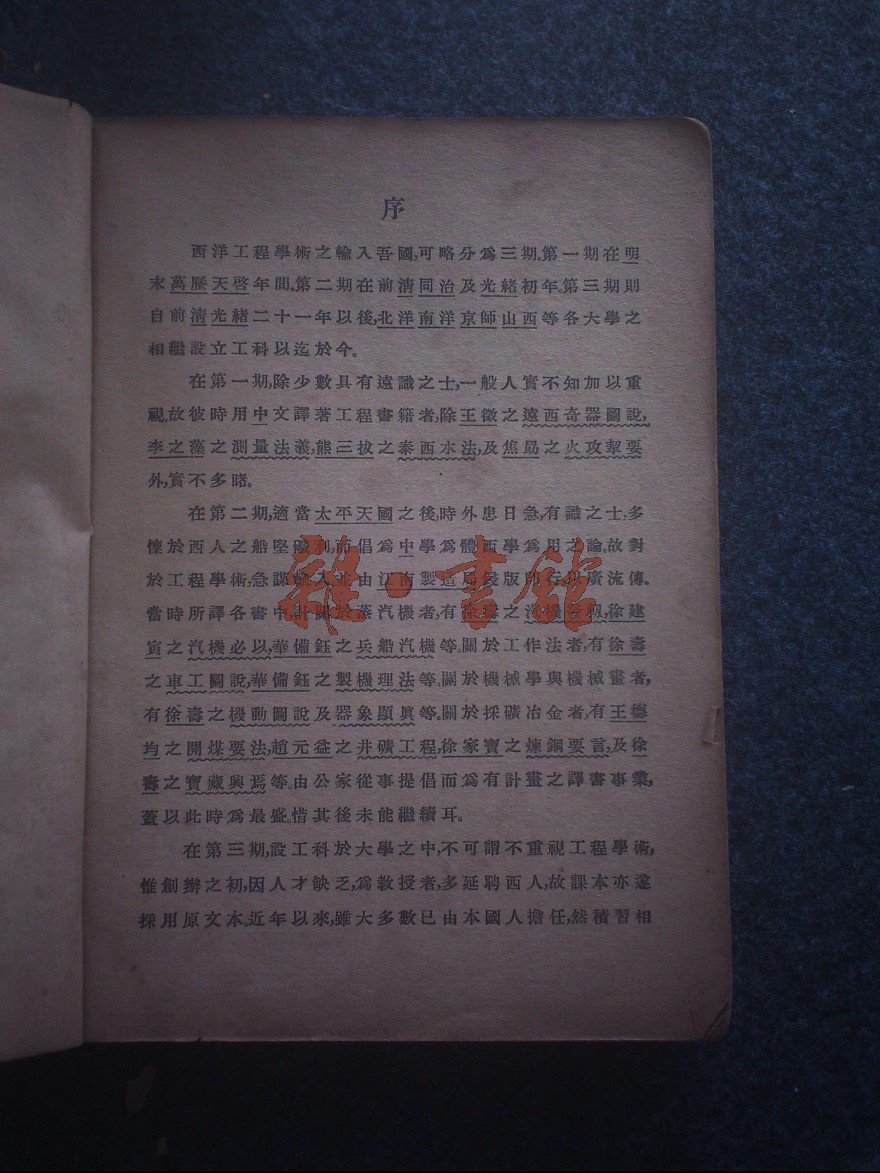 序
西洋工程學術之輸入吾國,可略分爲三期。第一期在明
末萬歷天啓年間。第二期在前清同治及光緒初年。第三期則
自前清光緒二十一年以後,北洋南洋京師山西等各大學之
相繼設立工科以迄於今。
在第一期,除少數具有遠識之士,一般人實不知加以重
視。故彼時用中文譯著工程書籍者,除王徵之遠西奇器圖說,
李之藻之測量法義,熊三拔之泰西水法,及焦勗之火攻挈要
外,實不多睹。
在第二期,適當太平天國之後,時外患日急,有識之士,多
懷於西人之船堅礮利,而倡爲中學爲體西學爲用之論。故對
於工程學術,急謀輸入,並由江南製造局鋟版印行,以廣流傳。
當時所譯各書中,計關於蒸汽機者,有徐壽之汽機發軔,徐建
寅之汽機必以,華備鈺之兵船汽機等。關於工作法者,有徐壽
之車工圖說,華備鈺之製機理法等。關於機械學與機械畫者,
有徐壽之機動圖說及器象顯眞等。關於採礦冶金者,有王德
均之開煤要法,趙元益之井礦工程,徐家寶之煉鋼要言,及徐
壽之寶藏興焉等。由公家從事提倡而爲有計畫之譯書事業,
蓋以此時爲最盛。惜其後未能繼續耳。
在第三期,設工科於大學之中,不可謂不重視工程學術,
惟創辦之初,因人才缺乏,爲教授者,多延聘西人,故課本亦遂
採用原文本。近年以來,雖大多數已由本國人擔任,然積習相
雜·書館